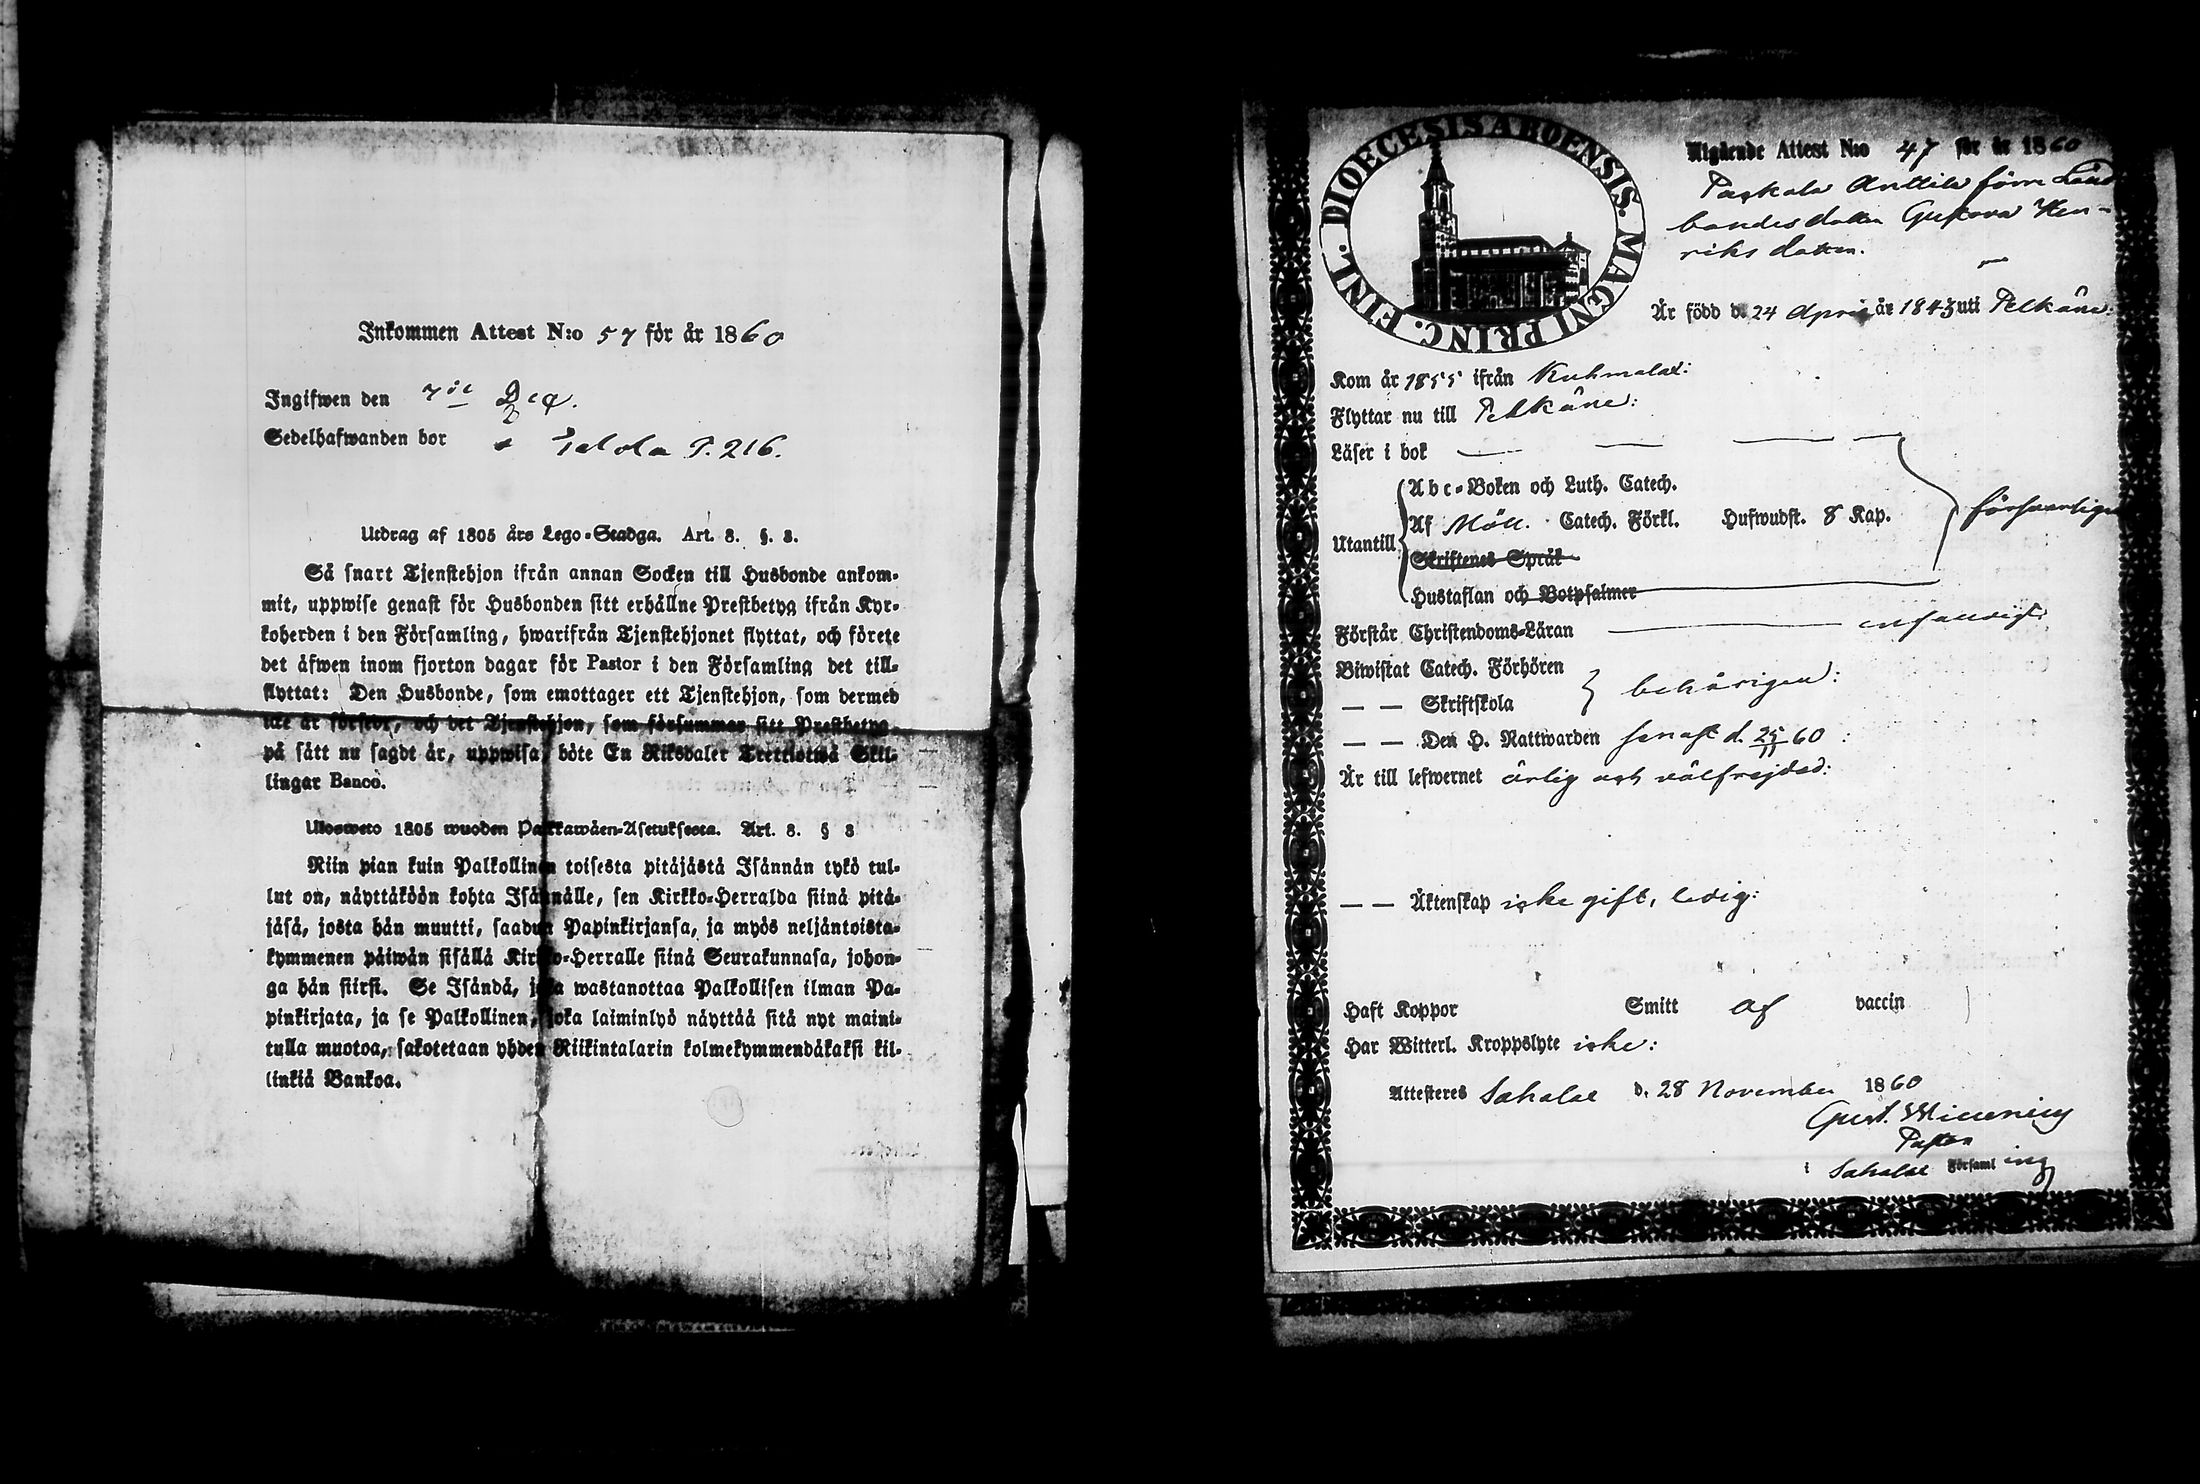 Inkommen Attest N:o 57 för år 1860
Ingifwen den 7de Dec.
Sedelhafwanden bor i P. 216.
Utdrag af 1805 års Lego-Stadga. Art. 8. §. 8.
Så snart Tjenstehjon ifrån annan Socken till Husbonde ankom-
mit, uppwise genast för Husbonden sitt erhållne Prestbetyg ifrån Kyr-
koherden i den Församling, hwarifrån Tjenstehjonet flyttat, och förete
det åfwen inom fjorton dagar för Pastor i den Församling det till-
flyttat: Den Husbonde, som emottager ett Tjenstehjon, som dermed
icke är försedt, och det Tjenstehjon, som försummar sitt Prestbetyg
på sått nu sagdt år, uppwisa, böte En Riksdaler Trettiotwå Skil-
lingar Banco.
Ulosweto 1805 wuoden Palkkawäen-Asetuksesta. Art. 8. § 8
Niin pian kuin Palkollinen toisesta pitäjästä Isännän tykö tul-
lut on, näyttäköön kohta Isännälle, sen Kirkko-Herralda siinä pitä-
jäsä, josta hän muutti, saadun Papinkirjansa, ja myös neljäntoista-
kymmenen päiwän sisällä Kirkko-Herralle siinä Seurakunnasa, johon-
ga hän siirsi. Se Isändä, joka wastanottaa Palkollisen ilman Pa-
pinkirjata, ja se Palkollinen, joka laiminlyö näyttää sitä nyt maini-
tulla muotoa, sakotetaan yhden Riikintalarin kolmekymmendäkaksi kil-
linkiä Bankoa.
DIOECESIS ABOENSIS. MAGNI PRINC. FINL.
Utgående Attest N:o 47 för år 1860
Paskala Anttila förre Land
bondesdotter Gustava Hen-
riksdotter.
Är född d. 24 April år 1843 uti Pelkäne:
Kom år 1855 ifrån Kuhmalax:
Flyttar nu till Pelkäne:
Läser i bok
Utantill
Abc-Boken och Luth. Catech.
Af Catech. Förkl. Hufwudst. 8 Kap.
försvarligen
Skriftenes Språk
Hustaflan och Botpsalmer
Förstår Christendoms-Läran enfaldigt
Biwistat Catech. Förhören
— — Skriftskola
behörigen:
— — Den H. Nattwarden senast d. 25/11 60:
Är till lefwernet ärlig och välfrejdad:
— — Äktenskap icke gift, ledig:
Haft Koppor Smitt af vaccin
Har Witterl. Kroppslyte icke:
Attesteres Sahalax d. 28 November 1860
Gust.
Pastor
i Sahalax Församling